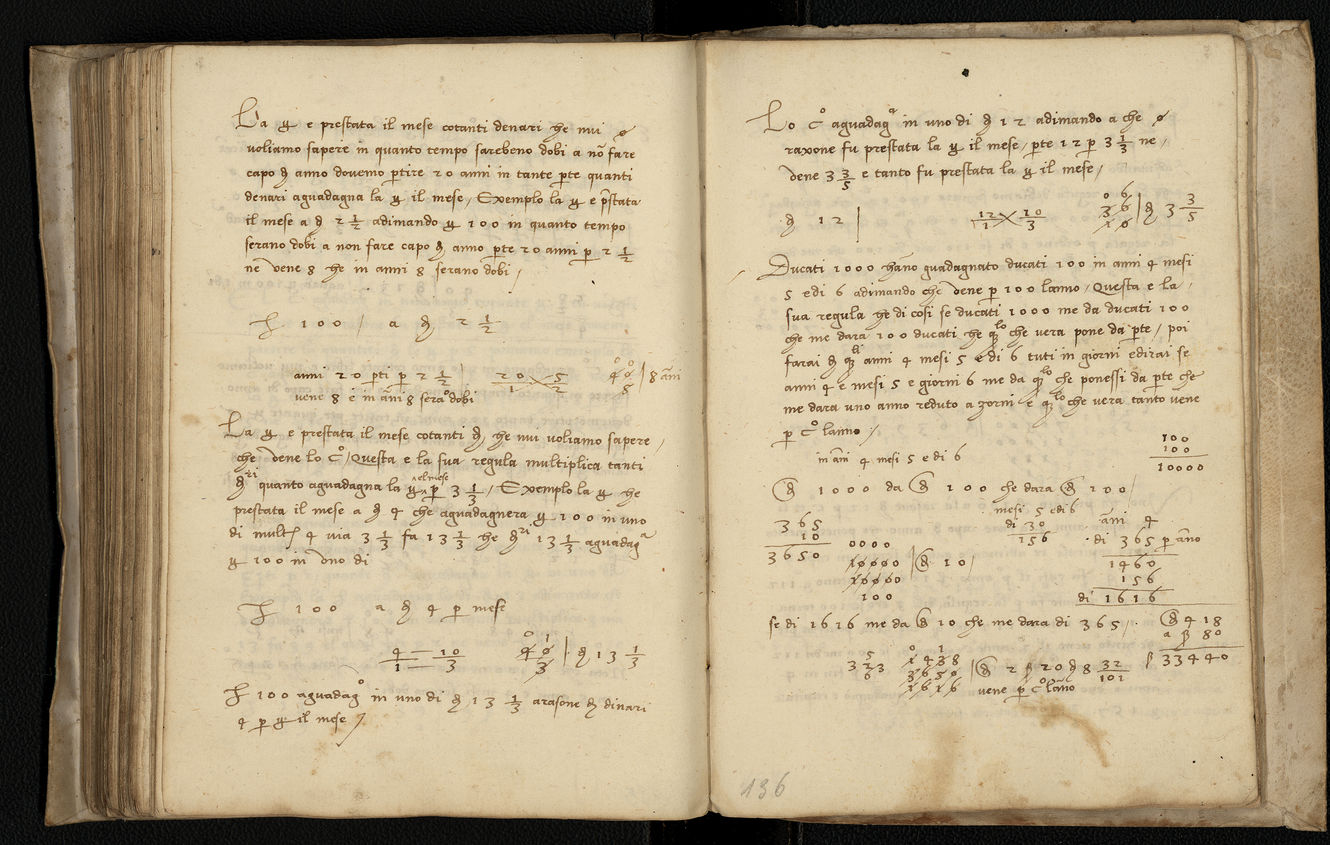 La ɡ̶ e prestata il mese cotanti denari che mui
voliamo sapere in quanto tempo sarebeno dobi a nõ fare
capo d anno dovemo ptire 20 anni in tante pte quanti
denari aguadagna la il mese / Exemplo la e pstata
il mese a d 2 1/2 adimando 100 in quanto tempo
serano dobi a non fare capo d anno pte 20 anni p 2 1/2
ne vene 8 he in anni 8 serano dobi /
100 / a d 2 1/2
anni 20 pti p 2 1/2 | 20/1 5/2 40 | 8 ãni
vene 8 e in ãni 8 serão dobi 5
La e prestata il mese cotanti d he mui voliamo sapere /
che vene lo Cº / Questa e la sua regula multiplica tanti
dri quanto aguadagna la el mese p 3 1/3 / Exemplo la he
prestata il mese a d 4 che aguadagnera 100 in uno
di 4 via 3 1/3 fa 13 1/3 he dri 13 1/3 aguadaga
100 in vno di
100 a d 4 p mese
4/1 10/3 40 | d 13 1/3
3
100 aguadagº in uno di d 13 1/3 arasone d dinari
4 p il mese /
Lo Cº aguadaga in uno di d 12 adimando a che
raxone fu prestata la il mese / pte 12 p 3 1/3 ne /
vene 3 3/5 e tanto fu prestata la il mese /
d 12 | 12/1 10/3 36 | d 3 3/5
10
Ducati 1000 hãno guadagnato ducati 100 in anni 4 mesi
5 e di 6 adimando che vene p 100 lanno / Questa e la /
sua regula he di cosi se ducati 1000 me da ducati 100
che me dara 100 ducati he qlo che vera pone da pte / poi
farai d qli anni 4 mesi 5 e di 6 tuti in giorni e dirai se
anni 4 e mesi 5 e giorni 6 me da qlo che ponessi da pte che
me dara uno anno reduto a zorni e qlo che vera tanto vene
p Cº lanno /
in ãni 4 mesi 5 e di 6
100
100
10000
d 1000 da d 100 che dara d 100 /
365
10
3650
0000
10000 | d 10 /
10000
100
mesi 5 e di 6
di 30
156
ãni 4
di 365 p ãno
1460
156
di 1616
se di 1616 me da d 10 che me dara di 365 / .
d 418
a ß 80
ß 33440
5
323
6
0 1
1438
3650
1616
d 2 ß 20 d 8 32/101
vene p Cº lãno
136